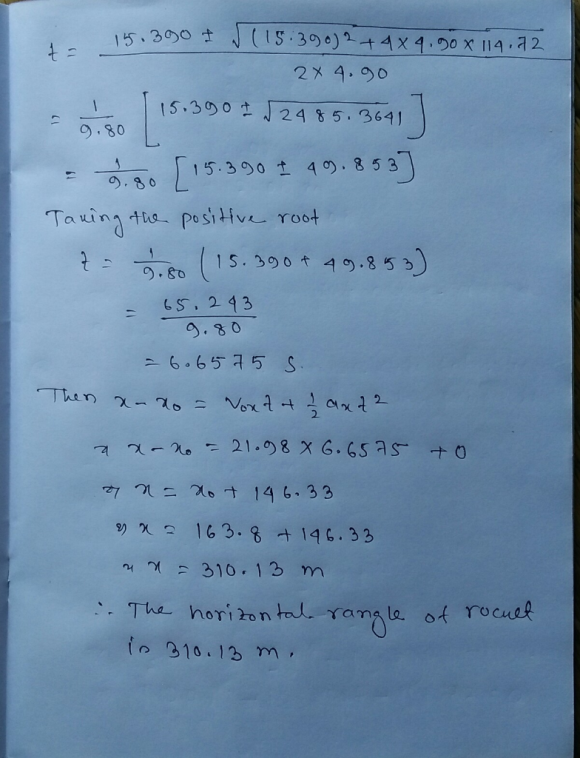 t = 15.390 ± √(15.390)² + 4 × 4.90 × 114.72 / 2 × 4.90
= 1/9.80 [15.390 ± √2485.3641]
= 1/9.80 [15.390 ± 49.853]
Taking the positive root
t = 1/9.80 (15.390 + 49.853)
= 65.243/9.80
= 6.6575 S.
Then x - x₀ = V₀ₓt + ½ aₓt²
⇒ x - x₀ = 21.98 × 6.6575 + 0
⇒ x = x₀ + 146.33
⇒ x = 163.8 + 146.33
⇒ x = 310.13 m
∴ The horizontal rangle of rocket
is 310.13 m.